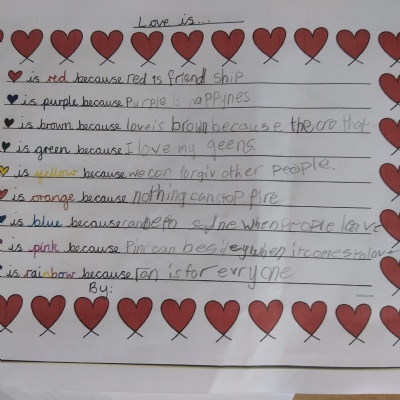 Love is...
is red because red is friend ship
is purple because Purple is happynes
is brown because love is brown because the cro that
is green because I love my geens.
is yellow because we can forgiv other people.
is orange because nothing canstop fire
is blue because can when people leave
is pink because Pinc can be when it comes to love
is rainbow because is for evryone
By: